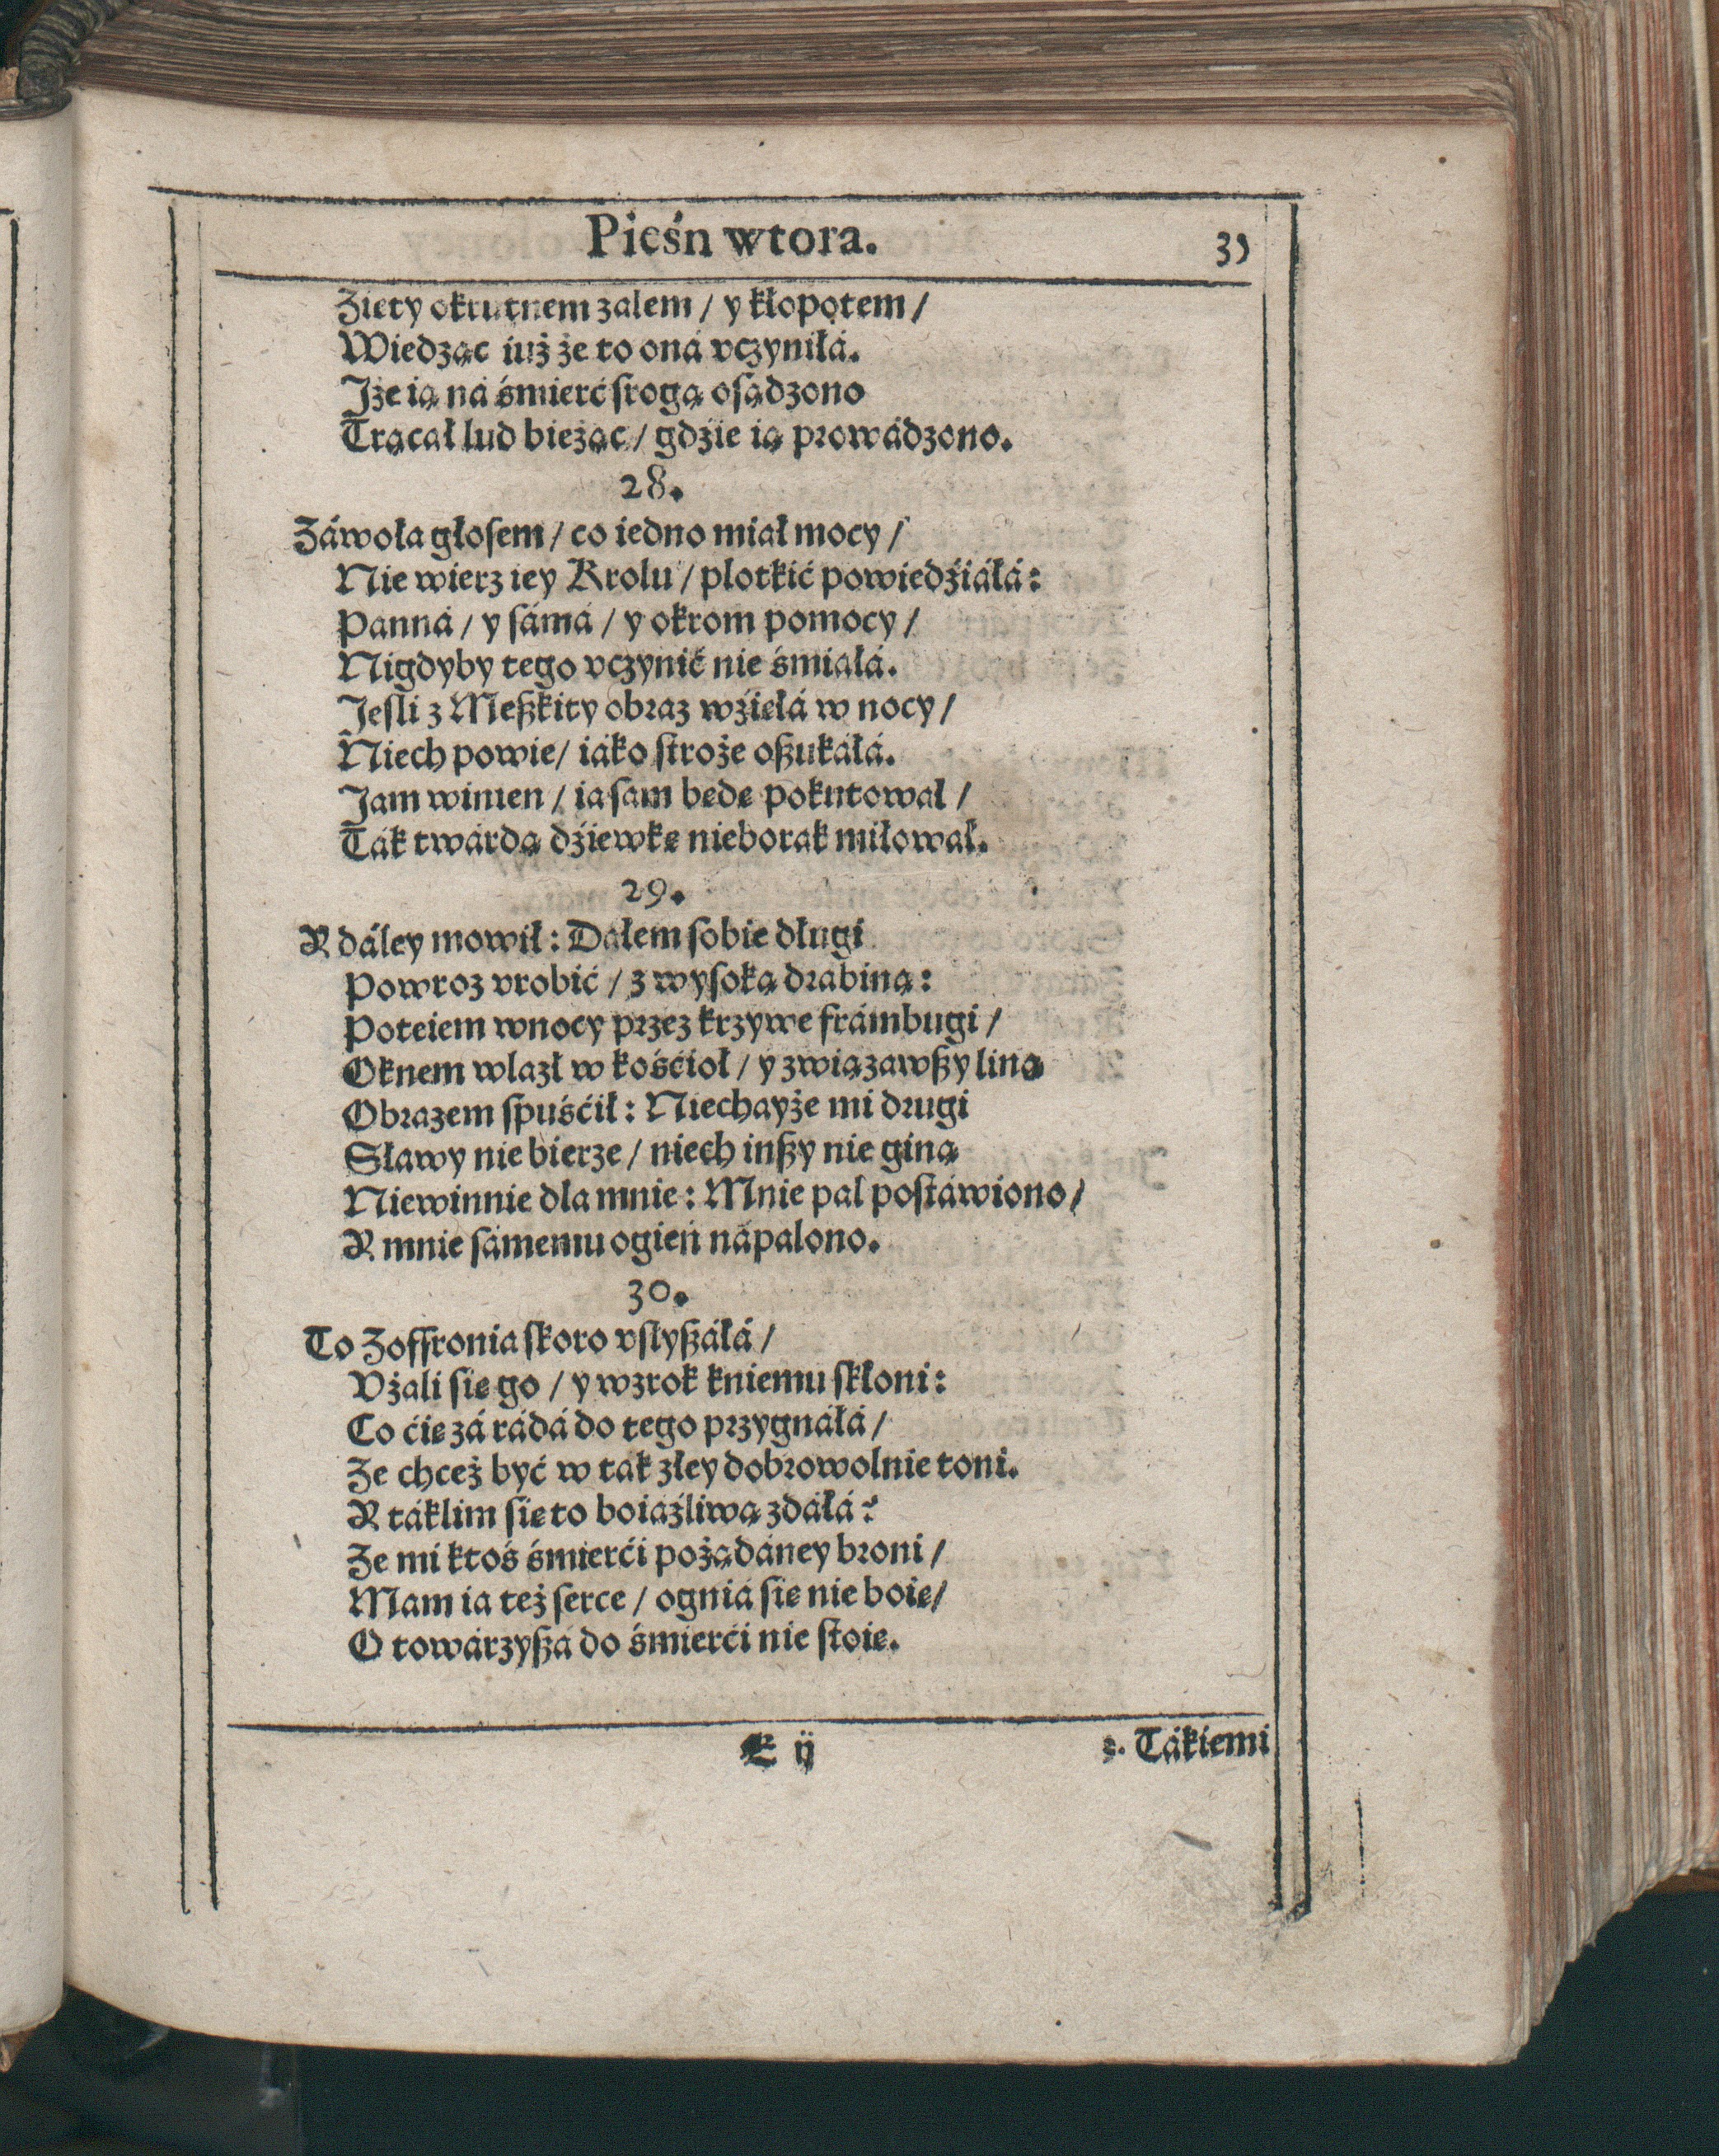 Pieśń wtora. 35
Zięty okrutnem żalem / y kłopotem /
Wiedząc iuż że to oná vczyniłá.
Jże ią ná śmierć srogą osądzono
Trącał lud bieżąc / gdźie ią prowádzono.
28.
Záwoła głosem / co iedno miał mocy /
Nie wierz iey Krolu / plotkić powiedźiáłá:
Pánná / y sámá / y okrom pomocy /
Nigdyby tego vczynić nie śmiałá.
Jesli z Meßkity obraz wźięłá w nocy /
Niech powie / iáko stroże oßukáłá.
Jam winien / ia sam będę pokutował /
Ták twárdą dźiewkę nieborak miłował.
29.
A dáley mowił: Dałem sobie długi
Powroz vrobić / z wysoką drabiną:
Poteiem wnocy przez krzywe frámbugi /
Oknem wlazł w kośćioł / y związawßy liną
Obrazem spuśćił: Niechayże mi drugi
Sławy nie bierze / niech inßy nie giną
Niewinnie dla mnie: Mnie pal postáwiono /
A mnie sámemu ogień nápalono.
30.
To Zoffronia skoro vslyßáłá /
Vżali się go / y wzrok kniemu skłoni:
Co ćię zá rádá do tego przygnáłá /
Ze chceż być w tak złey dobrowolnie toni.
A táklim się to boiáźliwą zdáłá?
Ze mi ktoś śmierći pożądáney broni /
Mam ia też serce / ogniá się nie boię /
O towárzyßá do śmierći nie stoię.
E ij
Tákiemi